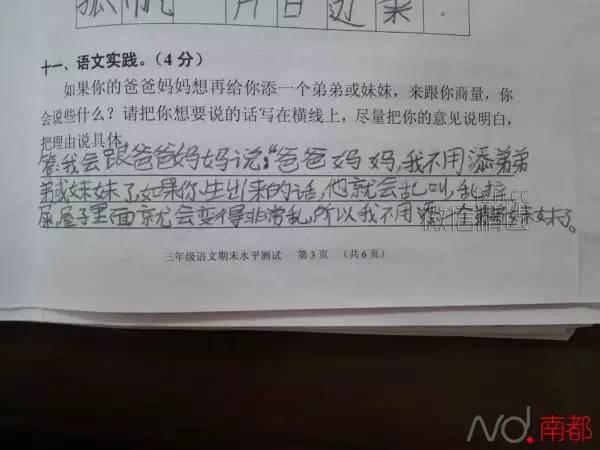 片 日 边 来 。
十一、语文实践。（4分）
如果你的爸爸妈妈想再给你添一个弟弟或妹妹，来跟你商量，你
会说些什么？请把你想要说的话写在横线上，尽量把你的意见说明白，
把理由说具体。
答:我会跟爸爸妈妈说:“爸爸妈妈,我不用添弟弟
弟或妹妹了,如果你生出来的话,他就会乱叫,乱拉
屎,屋子里面就会变得非常乱,所以我不用添 妹妹了。
三年级语文期末水平测试 第3页 （共6页）
nd.南都